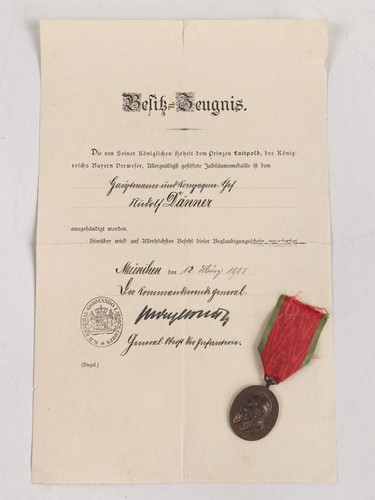 Besitz=Zeugnis.
Die von Seiner Königlichen Hoheit dem Prinzen Luitpold, des König-
reichs Bayern Verweser, Allergnädigst gestiftete Jubiläumsmedaille ist dem
Hauptmann und Kompagnie-Chef
Rudolf Dänner
ausgehändigt worden.
Hierüber wird auf Allerhöchsten Befehl dieser Beglaubigungs
München den 12. März 1905.
Der Kommandierende General:
General der Infanterie.
(Siegel.)